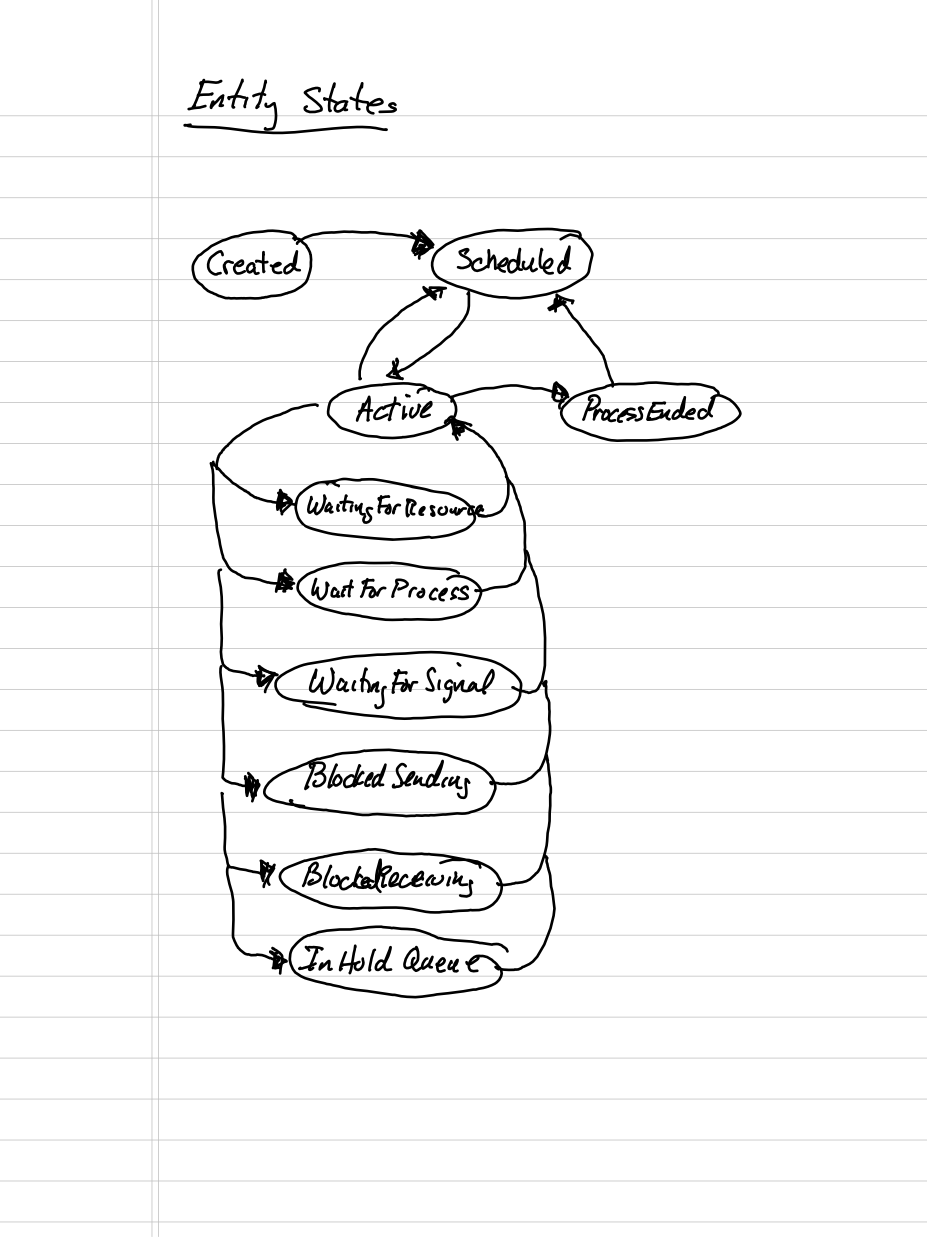 Entity States
Created
Scheduled
Active
ProcessEnded
WaitingForResource
WaitForProcess
WaitingForSignal
Blocked Sending
BlockedReceiving
In Hold Queue